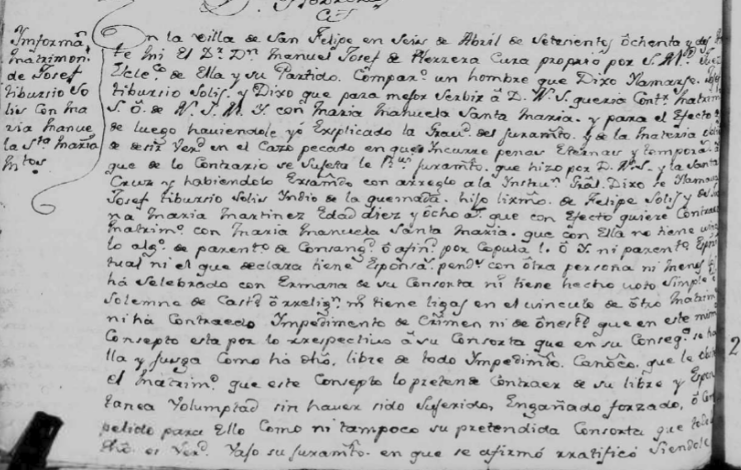 Informaⁿ
matrimoni.
de Josef
tibursio So
lis con Ma
ria Manue
la Sta. Maria
Mtos.
En la villa de San Felipe en Seis de Abril de Setesientos ôchenta y dos
te mi El Dr. Dn. Manuel Josef de Herrera Cura proprio por S. M.
Ecleo. de Ella y su Partido. Comparo. un hombre que Dixo Llamarse
tibursio Solis, y Dixo que para mejor Serbir â D. N. S. queria Contr. Matrim
S. ô. de N. S. M. Y. con Maria Manuela Santa Maria. y para el Efecto
de luego haviendole yo Exsplicado la Grau. del juramto. y de la materia
de desir Verd. en el Cazo pecado en que Incurre penas Eternas y tempora.
que de lo Contrario se Sujeta le juramto. que hizo por D. N. S. y la Santa
Cruz y habiendolo Examdo. con arreglo a la Instrun. Gral. Dixo se llamar
Josef tibursio Solis Indio de la quemada. hijo lixmo. de Felipe Solis y de
na Maria Martinez Edad diez y ôcho as. que con Efecto quiere Contrae
Matrimo. con Maria Manuela Santa Maria. que con Ella no tiene
lo algo. de parento. de Consango. ô afino. por Copula l. ô Y. ni parento Espiri
tual ni el que declara tiene Esponsa. pends. con ôtra persona ni menos
ha Selebrado con Ermana de su Consorta ni tiene hecho voto Simple
Solemne de Castd. ô rrelign. ni tiene ligas en el vinculo de ôtro Matrim
ni ha Contraedo Impedimento de Crimen ni de ônestd. que en este mim
Consepto esta por lo rrespectivo â su Consorta que en su Conseqa. se ha
lla y jusga Como ha dho. libre de todo Impedimto. Canoco. que le
el Matrimo. que este Consepto lo pretende Contraer de su libre y Espon
tanea Volumptad sin haver sido Sujerido, Engañado forzado, ô Com
pelido para Ello Como ni tampoco su pretendida Consorta que todo
dho. es Verd. Vajo su juramto. en que se afirmó rratificó Siendole
2